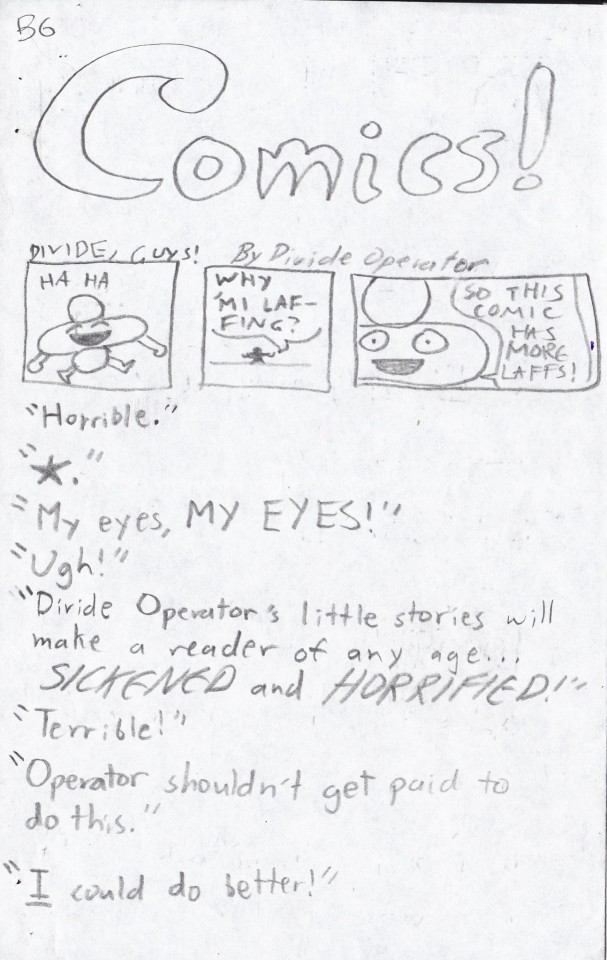 B6
Comics!
DIVIDE, GUYS! By Divide Operator
HA HA
WHY
'MI LAF-
FING?
SO THIS
COMIC
HAS
MORE
LAFFS!
"Horrible."
"★."
"My eyes, MY EYES!"
"Ugh!"
"Divide Operator's little stories will
make a reader of any age...
SICKENED and HORRIFIED!"
"Terrible!"
"Operator shouldn't get paid to
do this."
"I could do better!"